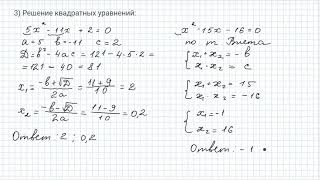 3) Решение квадратных уравнений:
5x² - 11x + 2 = 0
a = 5 b = -11 c = 2
D = b² - 4ac = 121 - 4·5·2 =
= 121 - 40 = 81
x₁ = (-b+√D)/2a = (11+9)/10 = 2
x₂ = (-b-√D)/2a = (11-9)/10 = 0,2
Ответ: 2 ; 0,2
x² - 15x - 16 = 0
по т. Виета
{ x₁ + x₂ = -b
x₁ · x₂ = c
{ x₁ + x₂ = 15
x₁ · x₂ = -16
{ x₁ = -1
x₂ = 16
Ответ: -1